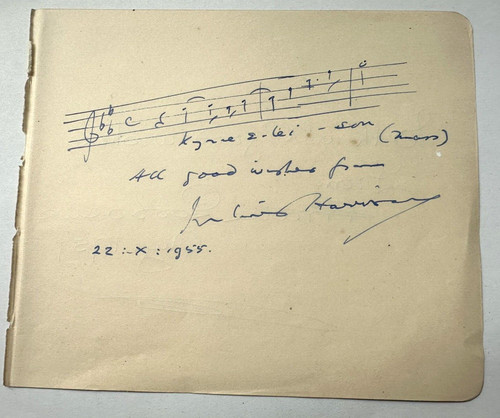 Kyrie E-lei - son (Mass)
All good wishes from
Julius Harrison
22 : X : 1955.